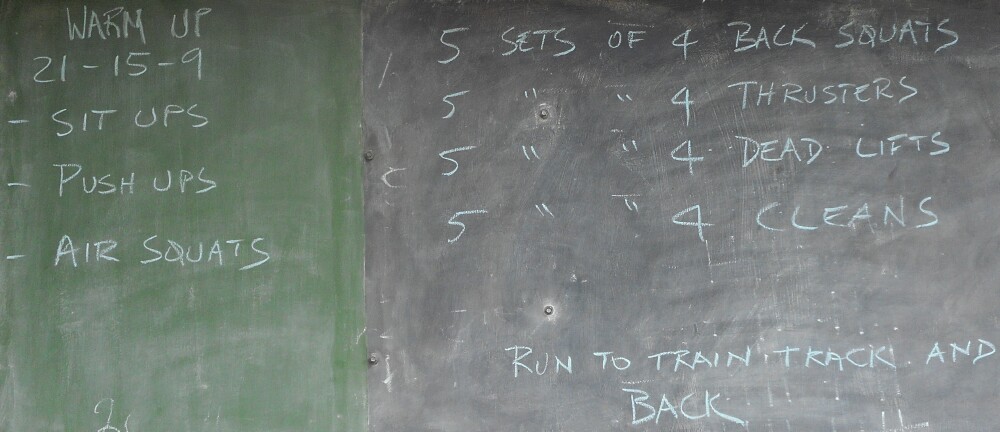 WARM UP
21-15-9
- SIT UPS
- PUSH UPS
- AIR SQUATS
5 SETS OF 4 BACK SQUATS
5 " " 4 THRUSTERS
5 " " 4 DEAD LIFTS
5 " " 4 CLEANS
RUN TO TRAIN TRACK AND
BACK